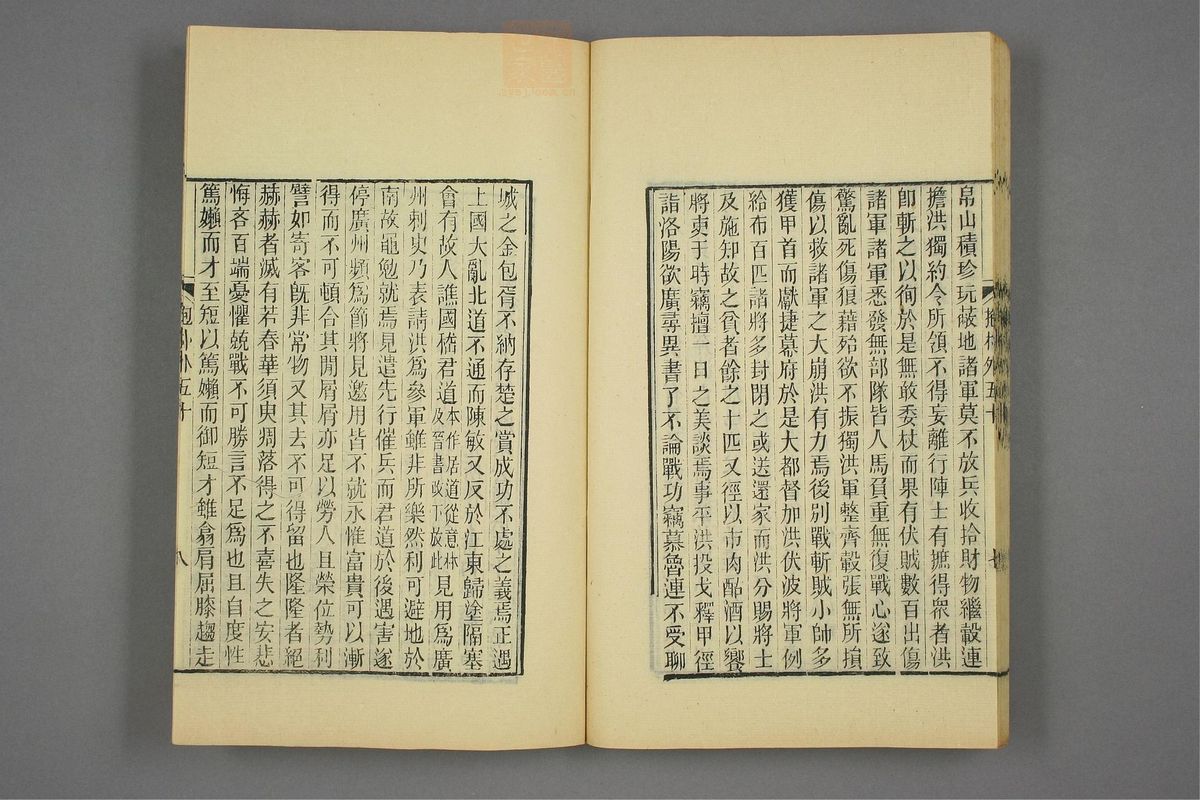 帛山積珍玩蔽地諸軍莫不放兵收拾財物繼轂連
擔洪獨約令所領不得妄離行陣士有摭得衆者洪
卽斬之以徇於是無敢委杖而果有伏賊數百出傷
諸軍諸軍悉發無部隊皆人馬負重無復戰心遂致
驚亂死傷狼藉殆欲不振獨洪軍整齊轂張無所損
傷以救諸軍之大崩洪有力焉後別戰斬賊小帥多
獲甲首而獻捷幕府於是大都督加洪伏波將軍例
給布百匹諸將多封閉之或送還家而洪分賜將士
及施知故之貧者餘之十匹又徑以市肉酤酒以饗
將吏于時竊擅一日之美談焉事平洪投戈釋甲徑
詣洛陽欲廣尋異書了不論戰功竊慕魯連不受聊
城之金包胥不納存楚之賞成功不處之義焉正遇
上國大亂北道不通而陳敏又反於江東歸塗隔塞
會有故人譙國嵇君道本作居道從意林及晉書改下放此見用爲廣
州刺史乃表請洪爲參軍雖非所樂然利可避地於
南故黽勉就焉見遣先行催兵而君道於後遇害遂
停廣州頻爲節將見邀用皆不就永惟富貴可以漸
得而不可頓合其閒屑屑亦足以勞人且榮位勢利
譬如寄客旣非常物又其去不可得留也隆隆者絕
赫赫者滅有若春華須臾凋落得之不喜失之安悲
悔吝百端憂懼兢戰不可勝言不足爲也且自度性
篤嬾而才至短以篤嬾而御短才雖翕肩屈膝趨走
抱朴外五十
八